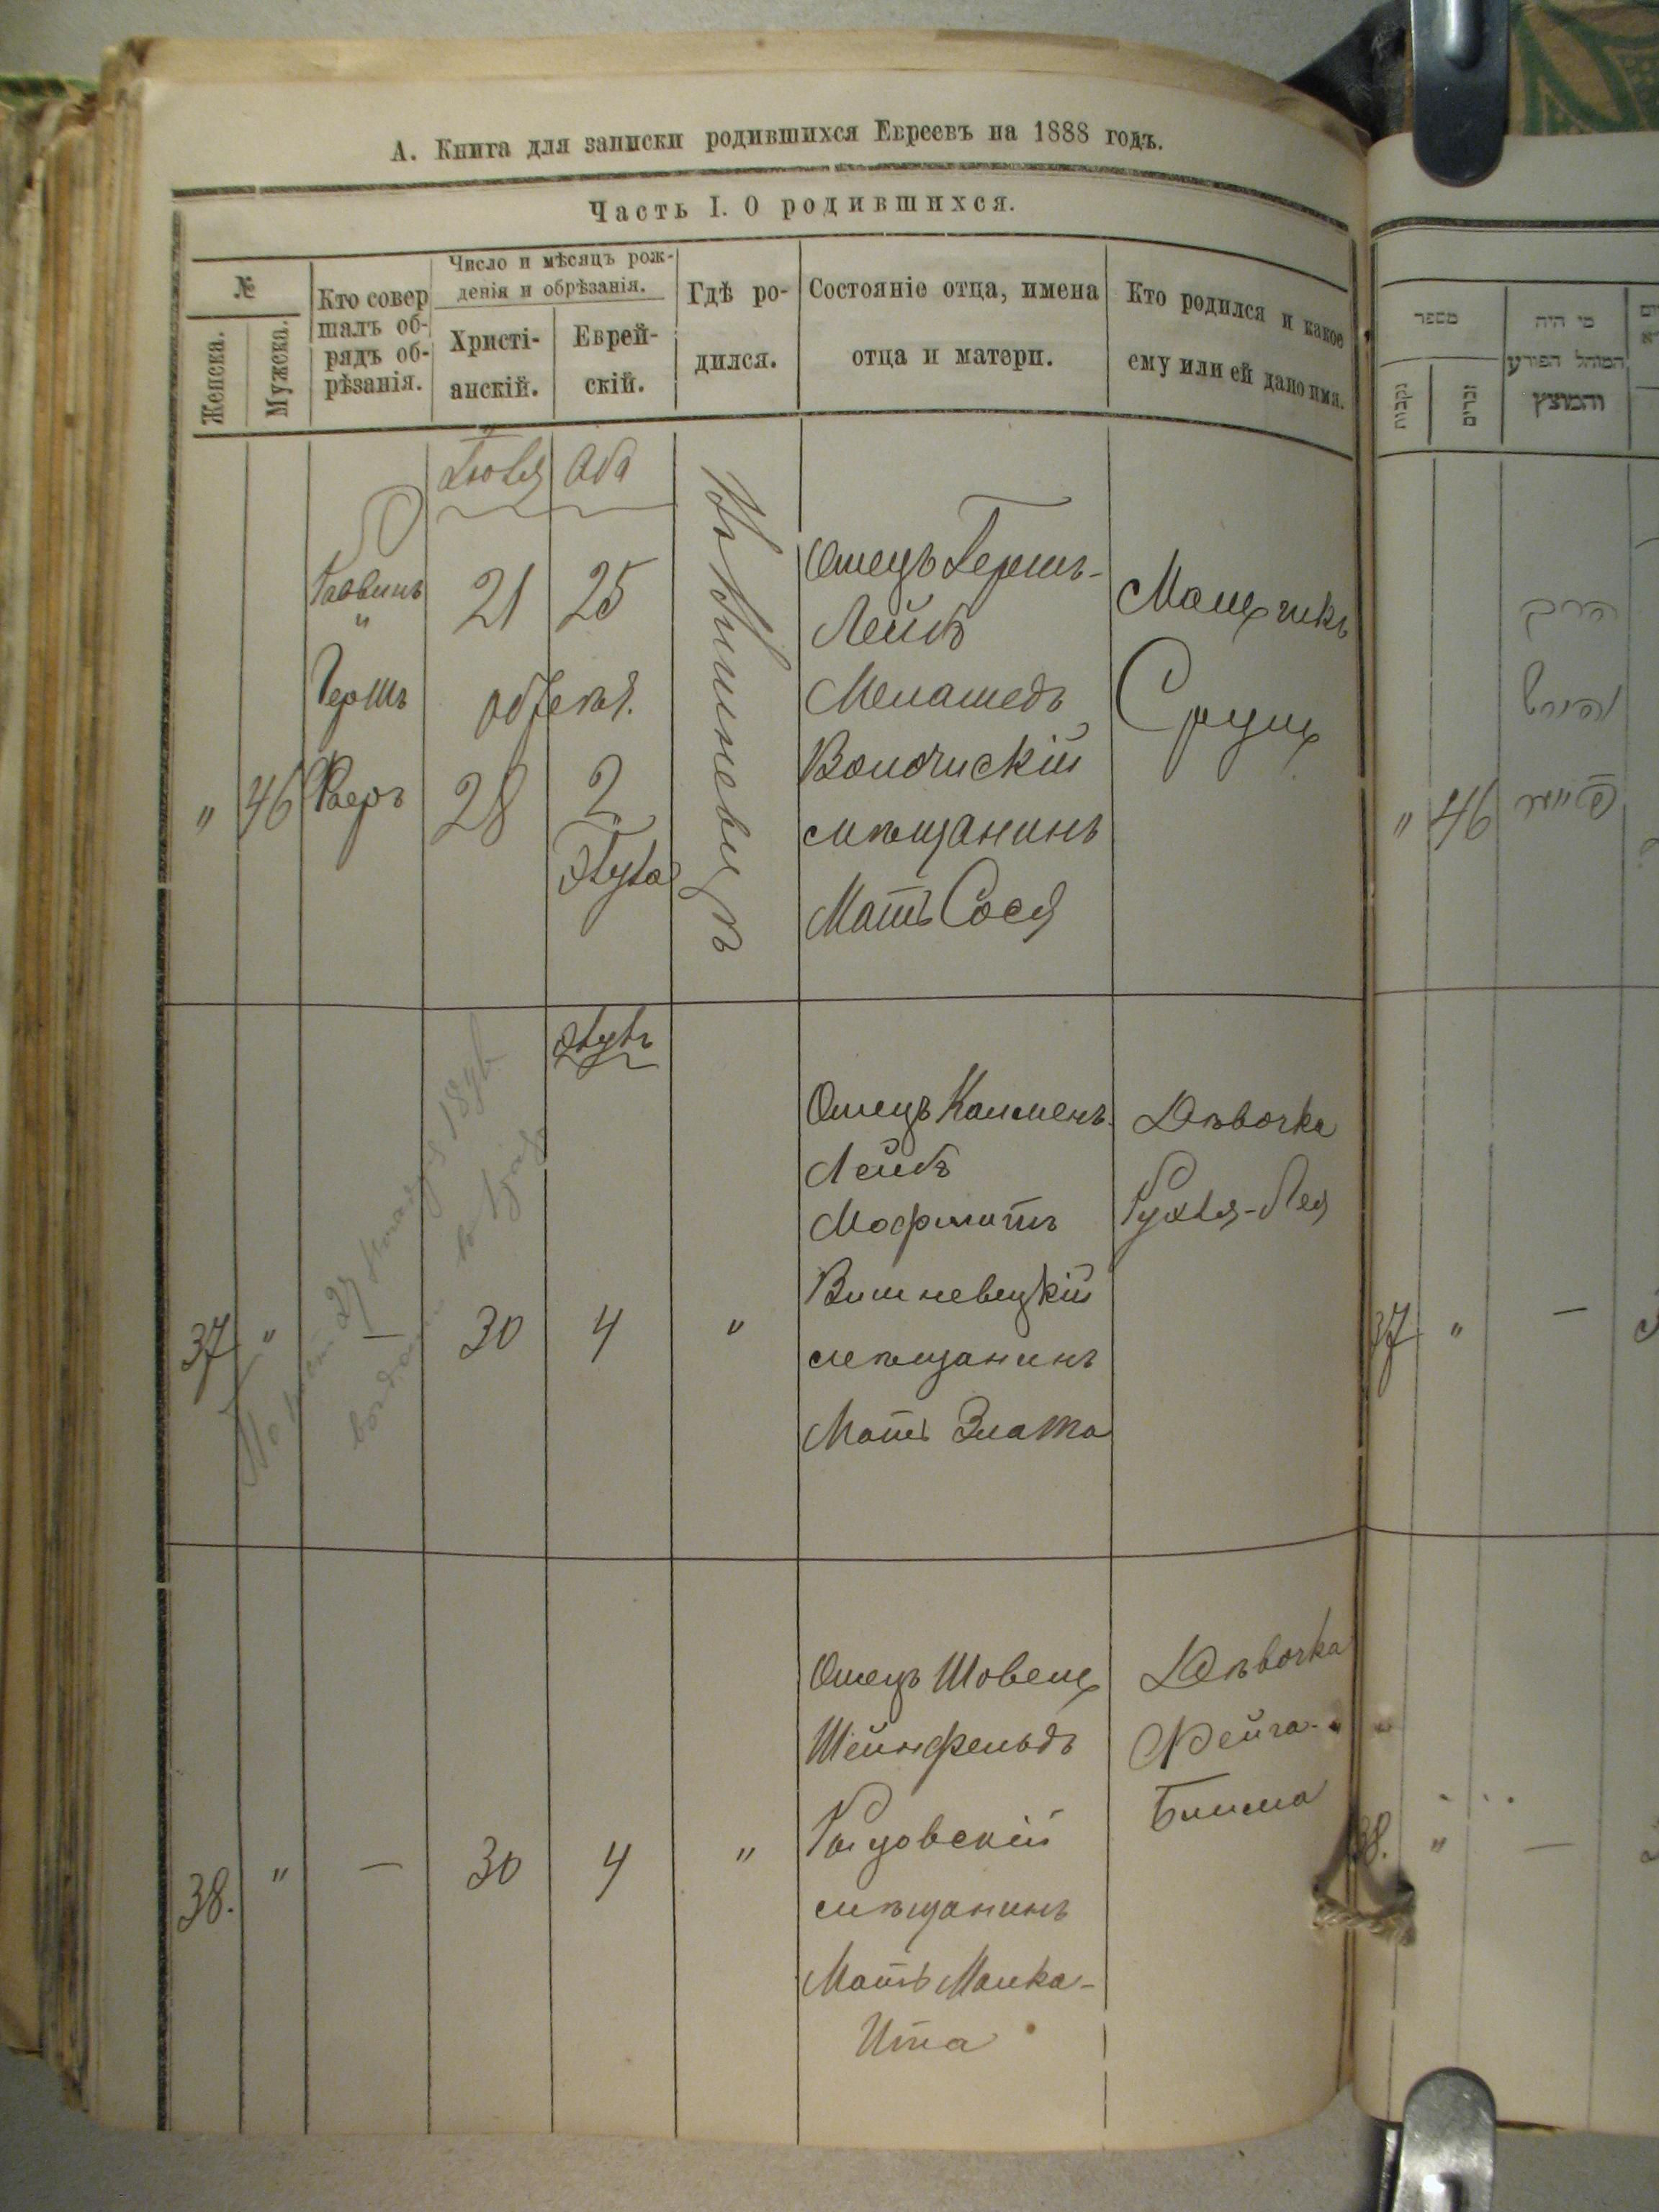 А. Книга для записки родившихся Евреевъ на 1888 годъ.
Часть I. О родившихся.
№
Женска.
Мужска.
Кто совер
шалъ об-
рядъ об-
рѣзанія.
Число и мѣсяцъ рож-
денія и обрѣзанія.
Христі-
анскій.
Еврей-
скій.
Гдѣ ро-
дился.
Состояніе отца, имена
отца и матери.
Кто родился и какое
ему или ей дано имя.
Іюля
Аба
"
46
Раввинъ
"
Гершъ
Фаеръ
21
25
обрезая.
28
2
Элула
Въ Вишневцѣ
Отецъ Гершъ-
Лейбъ
Менашедъ
Волочискій
мѣщанинъ
Мать Сося
Мальчикъ
Сруль
37
"
—
30
Элулъ
4
"
Отецъ Кальменъ
Лейбъ
Мофшитъ
Вишневецкій
мѣщанинъ
Мать Злата
Дѣвочка
Рухля-Лея
38.
"
—
30
4
"
Отецъ Шовель
Шейнфельдъ
мѣщанинъ
Мать Малка-
Ита
Дѣвочка
Фейга-
Блима
מספר
נקבות
זכרים
מי היה
המוהל הפורע
והמוצץ
"
46
הרב
הירש
פייער
37
"
—
38.
"
—